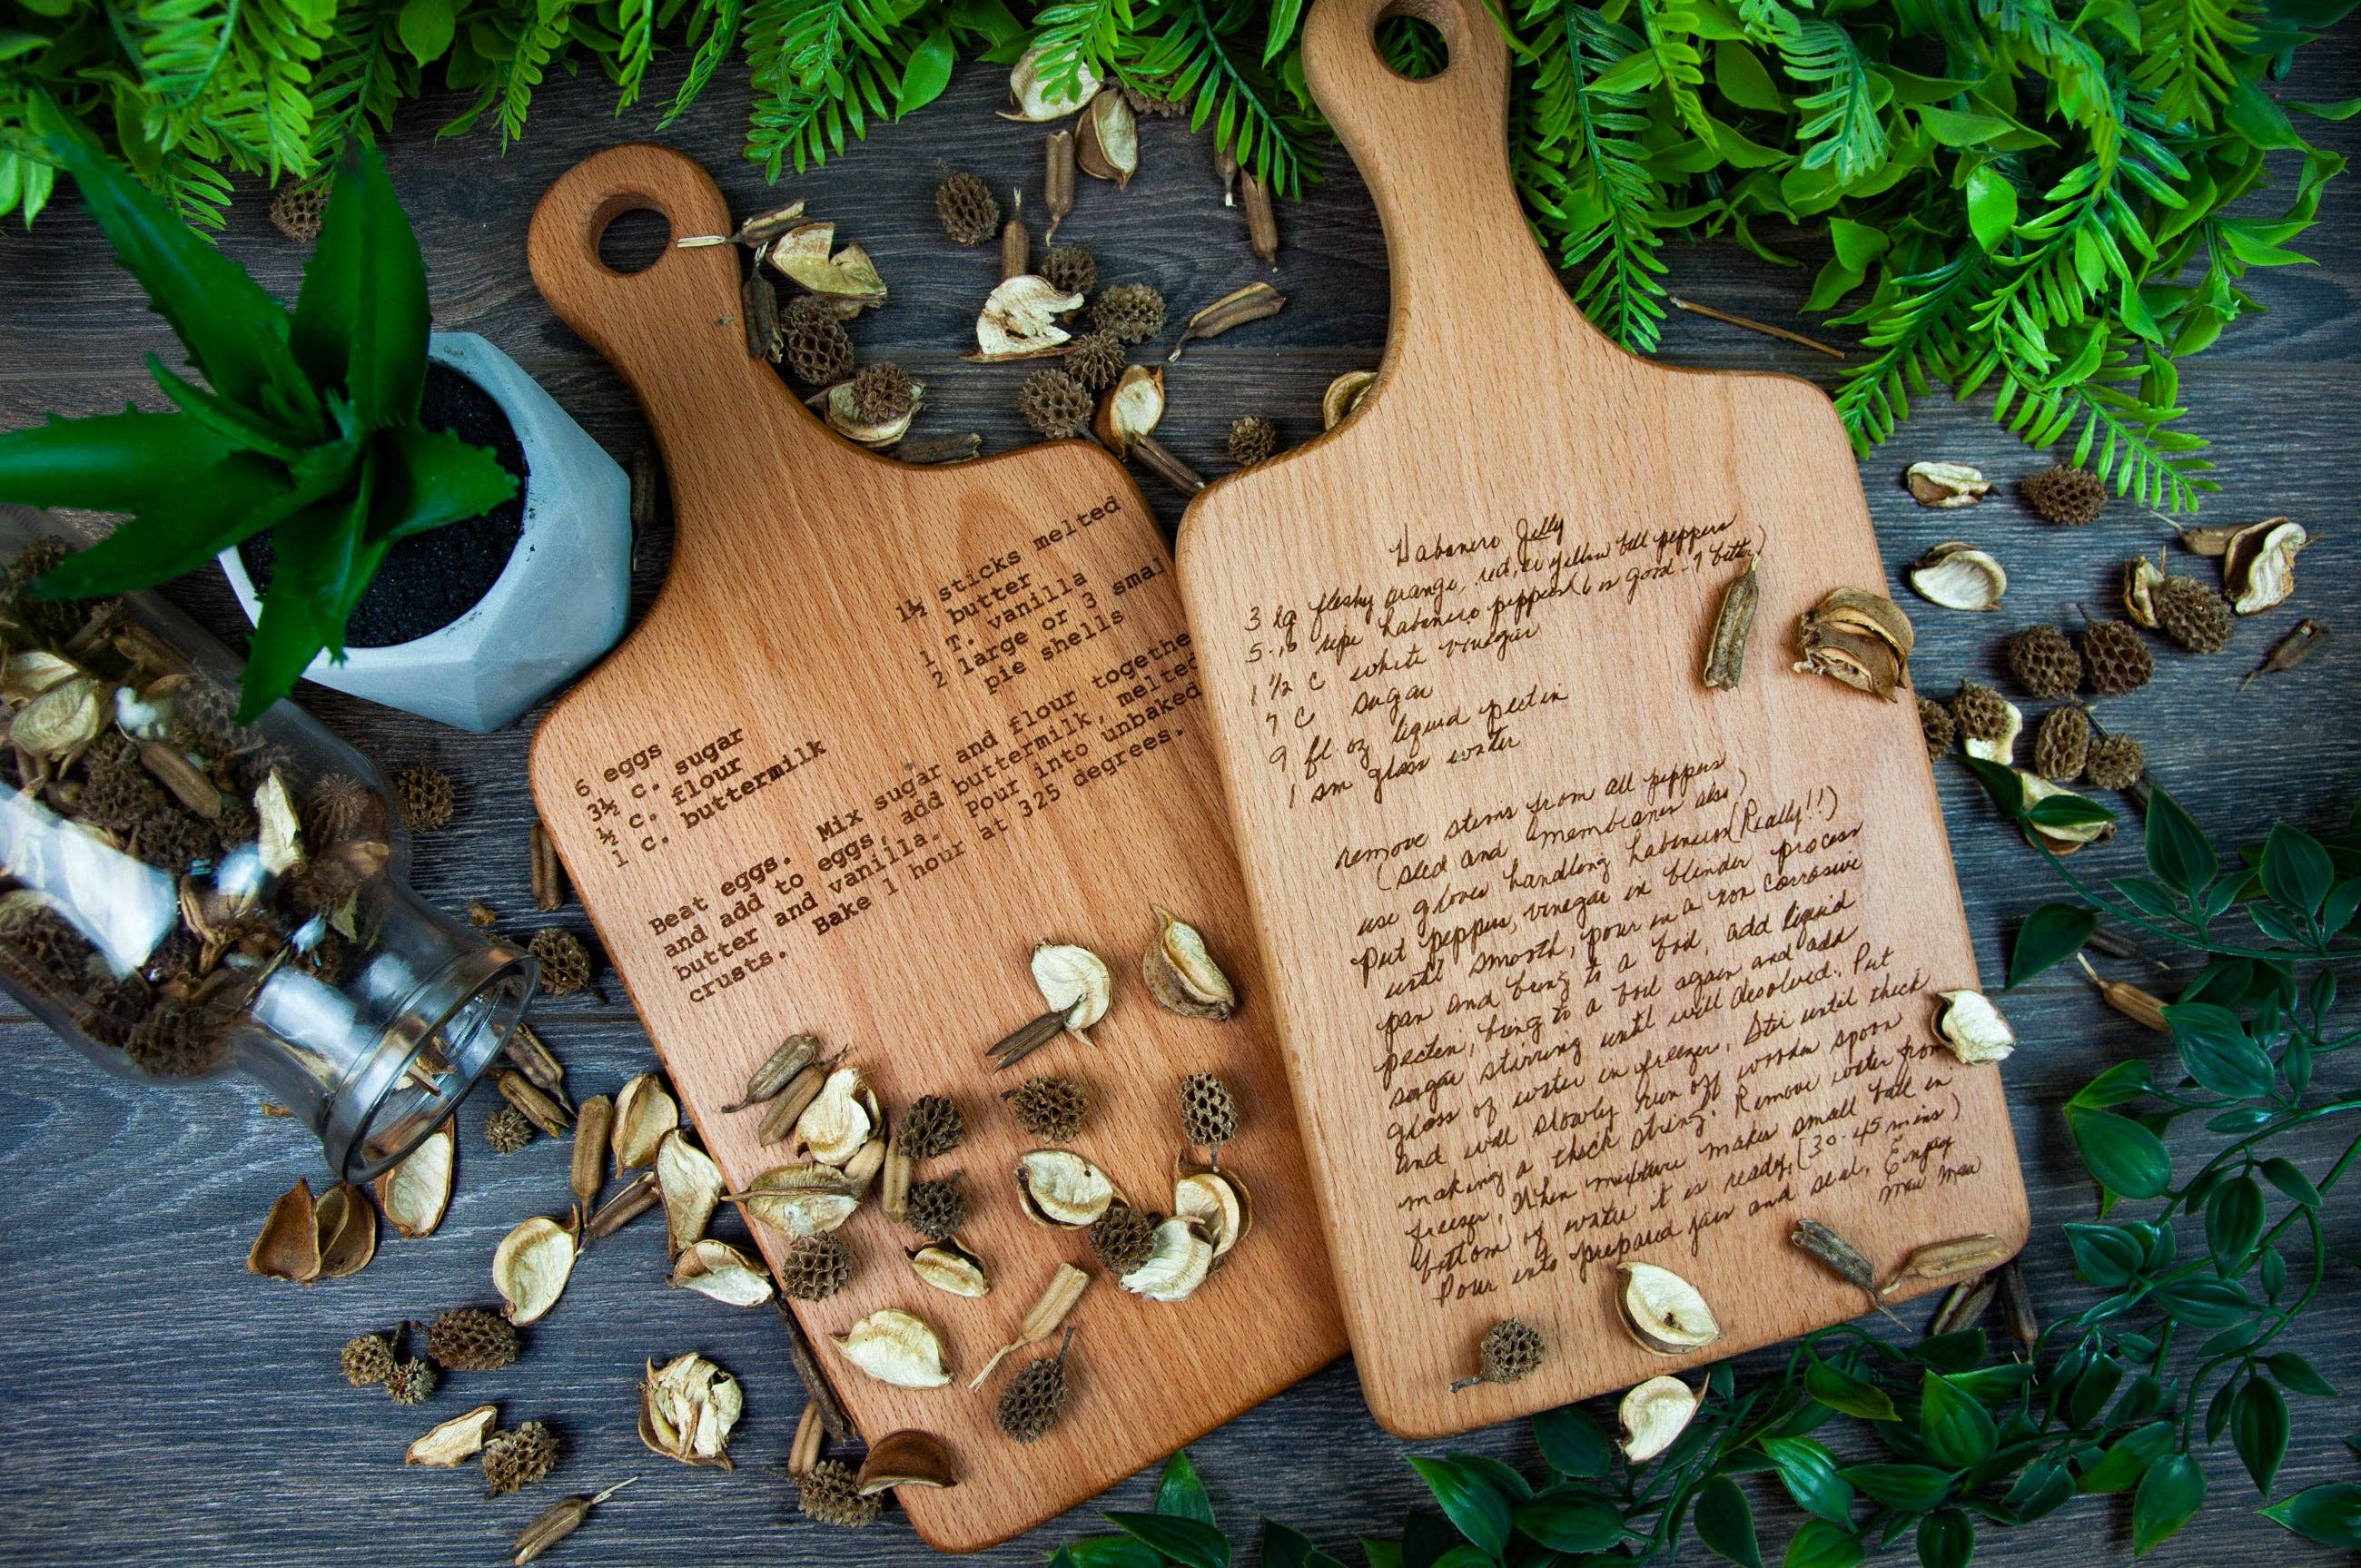 1½ sticks melted
butter
1 T. vanilla
2 large or 3 smal
pie shells
6 eggs
3½ c. sugar
½ c. flour
1 c. buttermilk
Beat eggs. Mix sugar and flour togethe
and add to eggs, add buttermilk, melted
butter and vanilla. Pour into unbaked
crusts. Bake 1 hour at 325 degrees.
Habanero Jelly
3 lg fleshy orange, red, or yellow bell peppers
5-10 ripe habanero peppers (6 is good - 7 bitter)
1 1/2 C white vinegar
7 C sugar
9 fl oz liquid pectin
1 sm glass water
remove stems from all peppers
(seed and membranes also)
use gloves handling habeneros (Really!!)
Put peppers, vinegar in blender process
until smooth, pour in a non corrosive
pan and bring to a boil, add liquid
pecten, bring to a boil again and add
sugar stirring until well desolved. Put
glass of water in freezer, Stir until thick
and will slowly run off wooden spoon
making a thick string. Remove water from
freezer, When mixture makes small ball in
bottom of water it is ready, (30-45 mins)
Pour into prepared jars and seal, Enjoy
Maw Maw